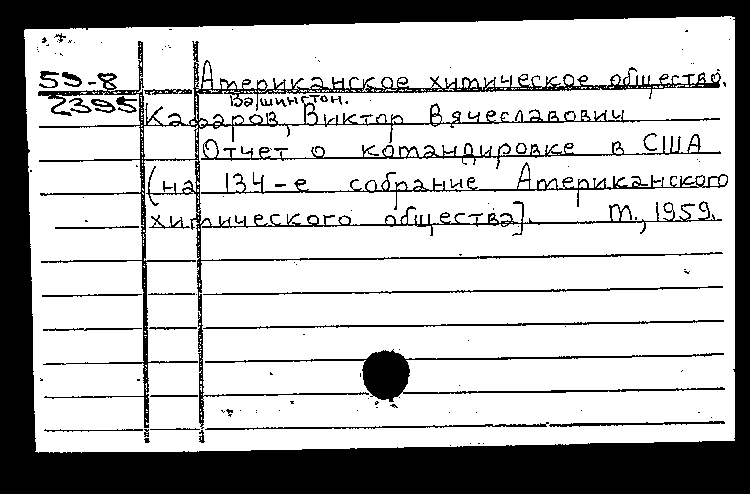 59-8 Американское химическое общество.
Вашингтон.
2395 Кафаров, Виктор Вячеславович
Отчет о командировке в США
(на 134-е собрание Американского
химического общества]. М., 1959.